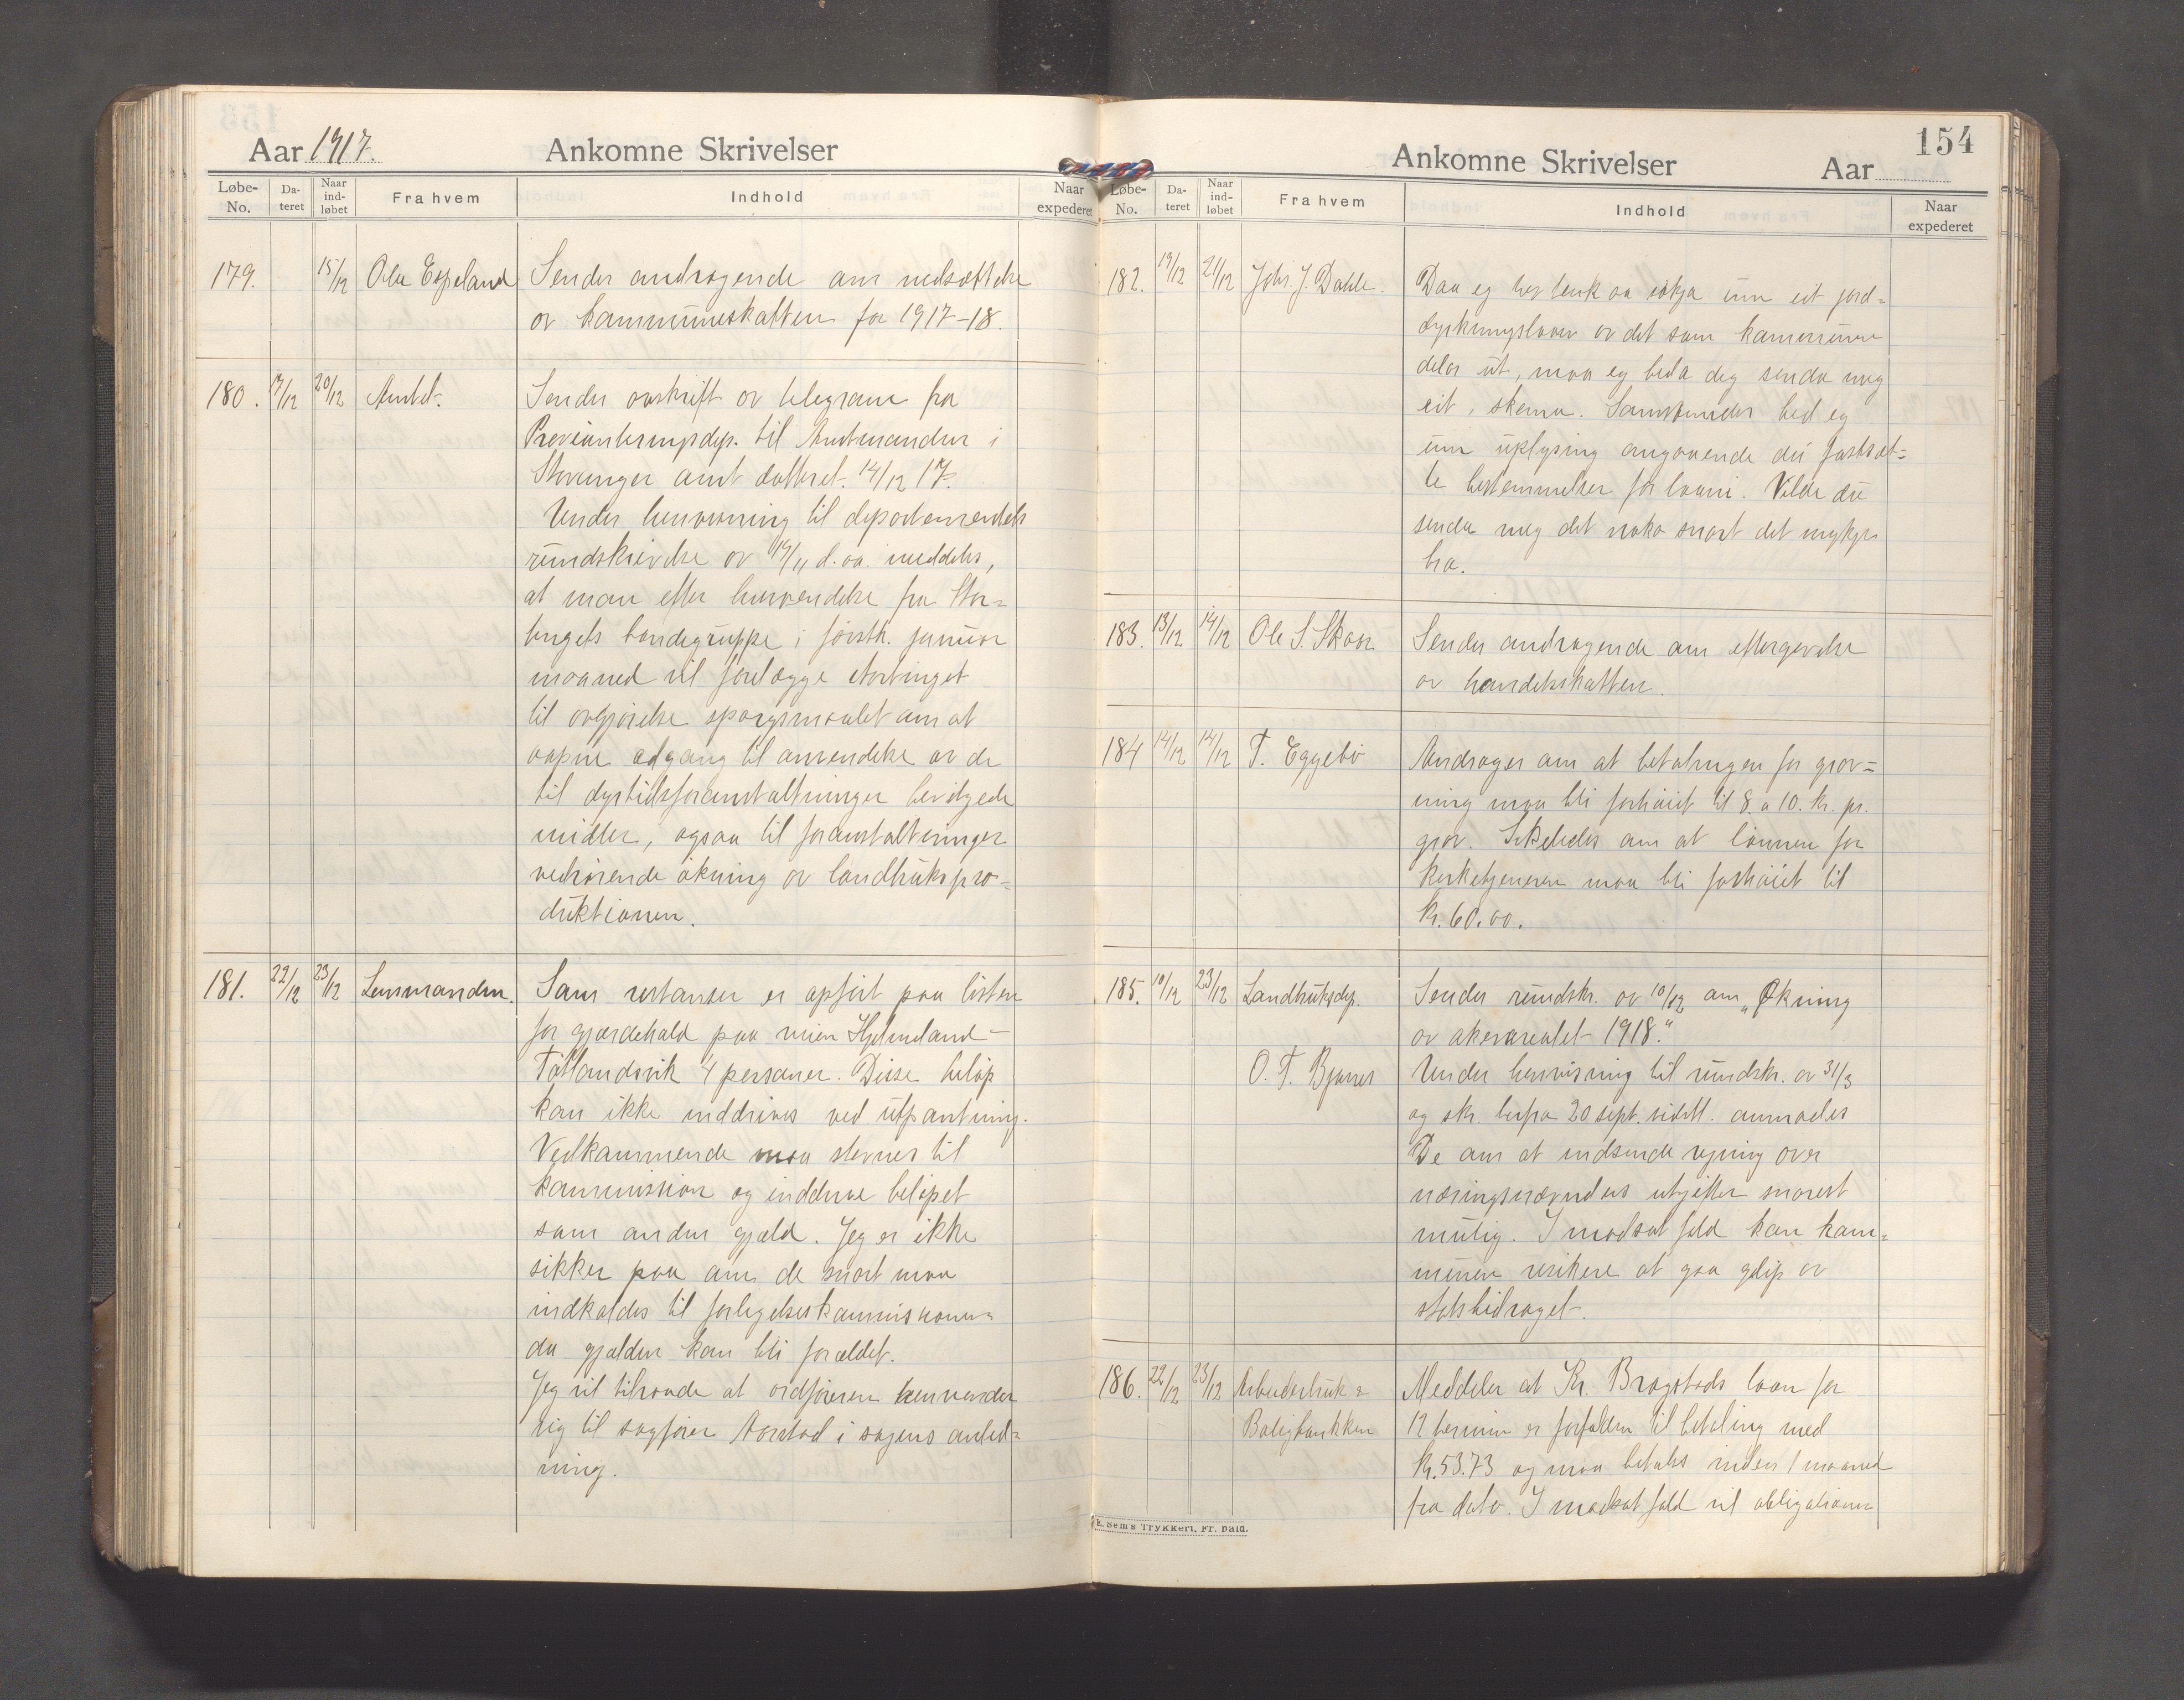 Aar 1917.
Ankomne Skrivelser
Løbe-No.
Da-teret
Naar ind-løbet
Fra hvem
Indhold
Naar expederet
179. 15/12 Ole Espeland Sender andragende om nedsættelse
av kommuneskatten for 1917-18.
180. 17/12 20/12 Amtet. Sender avskrift av telegram fra
Provianteringsdep. til Amtmanden i
Stavanger amt datteret. 14/12 17.
Under henvisning til departementets
rundskrivelse av 19/11 d. aa. meddeles,
at man efter henvendelse fra Stor=
tingets bondegruppe i førstk. januar
maaned vil forelægge stortinget
til avgjørelse spørgsmaalet om at
aapne adgang til anvendelse av de
til dyrtidsforanstaltninger bevilgede
midler, ogsaa til foranstaltninger
vedrørende økning av landbrukspro=
duktionen.
181. 22/12 23/12 Lensmanden. Som restanser er opført paa listen
for gjærdehald paa veien Hjelmeland-
Tøtlandsvik 4 personer. Disse beløp
kan ikke inddrives ved utpantning.
Vedkommende maa stevnes til
kommission og inddrive beløpet
som anden gjæld. Jeg er ikke
sikker paa om de snart maa
indkaldes til forligelseskommissionen
da gjælden kan bli forældet.
Jeg vil tilraade at ordføreren henvender
sig til sagfører Aarstad i sagens anled=
ning.
154
Ankomne Skrivelser
Aar
Løbe-No.
Da-teret
Naar ind-løbet
Fra hvem
Indhold
Naar expederet
182. 19/12 21/12 Johs. J. Dahle. Daa eg her tenk aa søkja um eit jord=
dyrkningslaan av det som kommunen
deler ut, maa eg beda deg senda meg
eit skema. Samstundes bed eg
um uplysing angaaende dei fastset=
te bestemmelser for laani. Vilde du
senda meg det noko snart det mykje
bra.
183. 13/12 14/12 Ole S. Skaar Sender andragende om eftergivelse
av handelsskatten.
184 14/12 14/12 T. Eggebø Andrager om at betalingen for grav=
ning maa bli forhøiet til 8 a 10. kr. pr.
grav. Likeledes om at lønnen for
kirketjeneren maa bli forhøiet til
kr. 60.00.
185. 10/12 23/12 Landbruksdep. Sender rundskr. av 10/12 om "Økning
av akerarealet 1918."
O. T. Bjanes Under henvisning til rundskr. av 31/3
og skr. herfra 20 sept. sidstl. anmodes
De om at indsende regning over
næringsnævndens utgifter snarest
mulig. I modsat fald kan kom=
munen risikere at gaa glip av
statsbidraget.
186. 22/12 23/12 Arbeiderbruk=
Boligbankken
Meddeler at Kr. Bragstads laan for
12 termin er forfalden til betaling med
kr. 53.73 og maa betales inden 1 maaned
fra dato. I modsat fald vil obligationen
E. Sem's Trykkeri, Fr. hald.